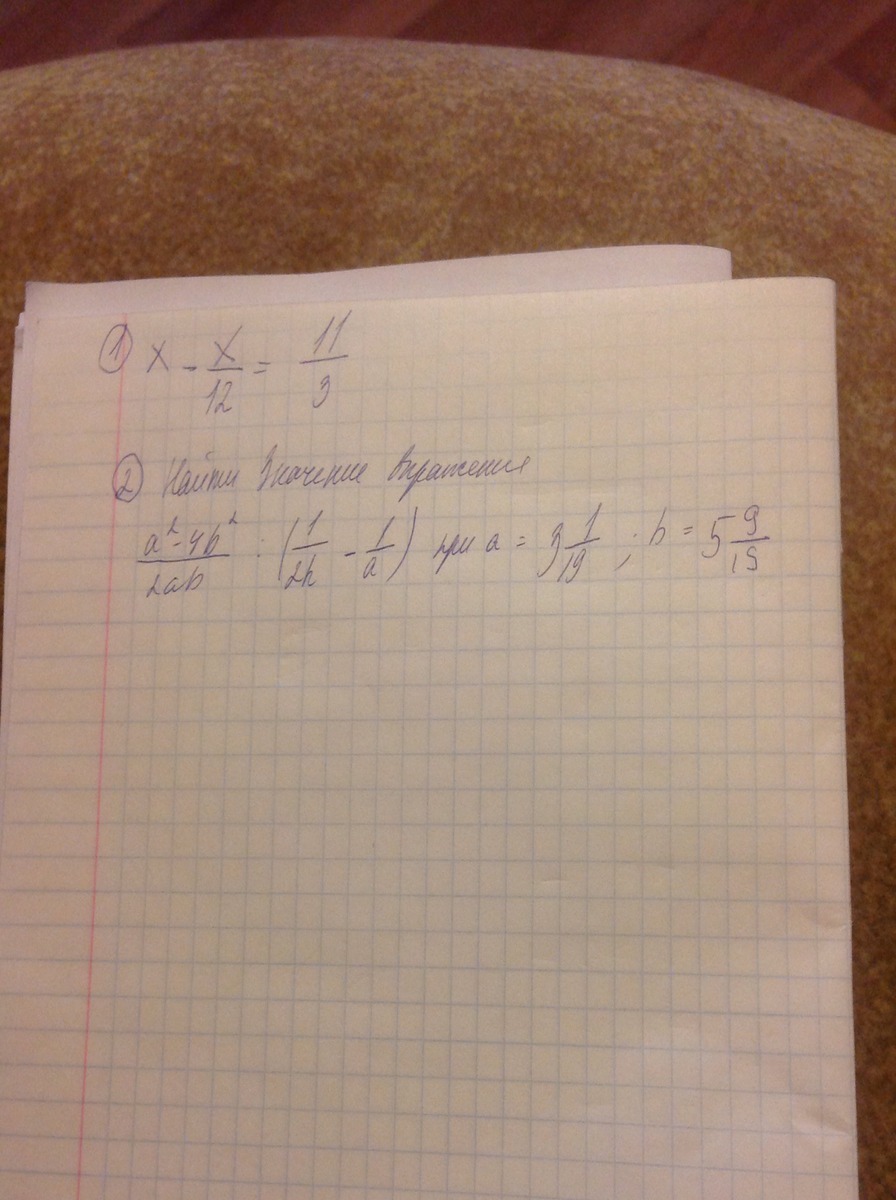 ① x - x/12 = 11/3
② Найти значение выражения
(a² - 4b²)/(2ab) : (1/(2b) - 1/a) при a = 3 1/19 ; b = 5 9/19